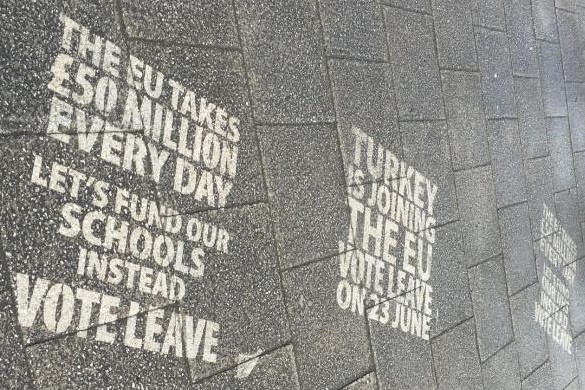 THE EU TAKES
£50 MILLION
EVERY DAY
LET'S FUND OUR
SCHOOLS
INSTEAD
VOTE LEAVE
TURKEY
IS JOINING
THE EU
VOTE LEAVE
ON 23 JUNE
VOTE LEAVE